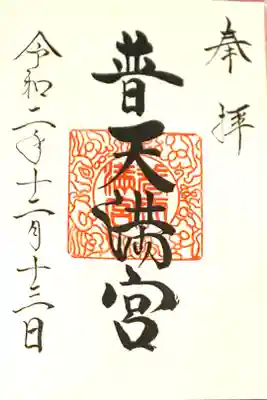 奉拝
普天満宮
令和二年十二月十三日